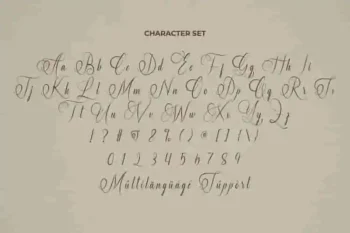 CHARACTER SET
Aa Bb Cc Dd Ee Ff Gg Hh Ii
Jj Kk Ll Mm Nn Oo Pp Qq Rr Ss
Tt Uu Vv Ww Xx Yy Zz
0 1 2 3 4 5 6 7 8 9
Múltilängüágé Túppört